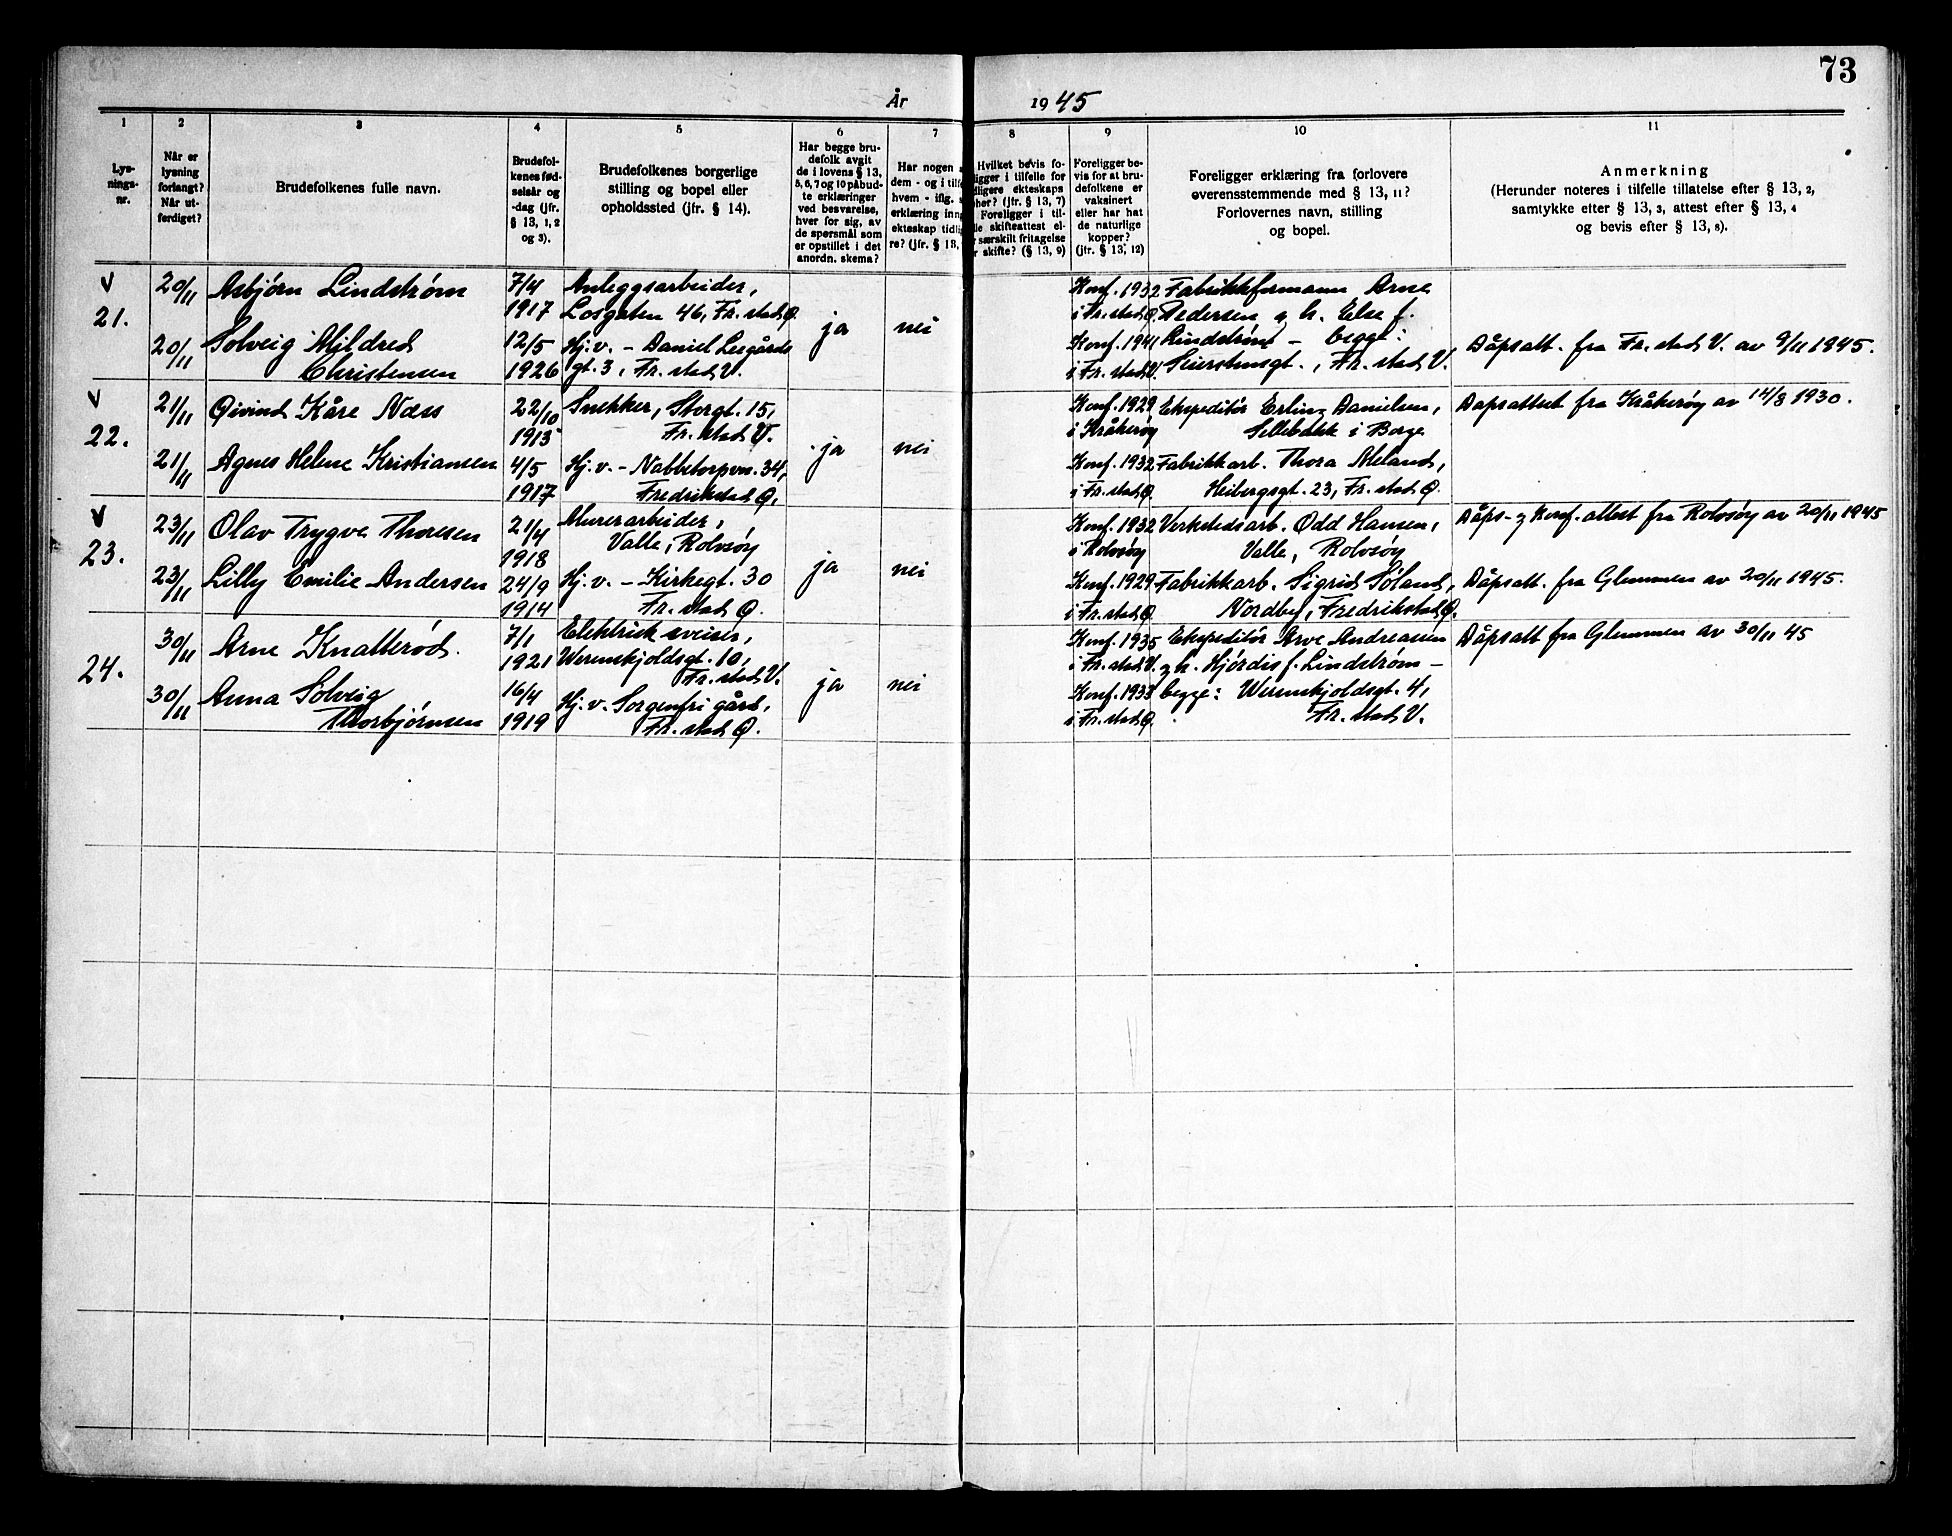 73
År 1945
1 2 3 4 5 6 7 8 9 10 11
Lys-
nings-
nr.
Når er
lysning
forlangt?
Når ut-
ferdiget?
Brudefolkenes fulle navn.
Brudefol-
kenes fød-
selsår og
-dag (jfr.
§ 13, 1, 2
og 3).
Brudefolkenes borgerlige
stilling og bopel eller
opholdssted (jfr. § 14).
Har begge bru-
defolk avgit
de i lovens § 13,
5, 6, 7 og 10 påbud-
te erklæringer
ved besvarelse,
hver for sig, av
de spørsmål som
er opstillet i det
anordn. skema?
Har nogen
dem - og i tilf
hvem - iflg.
erklæring inng
ekteskap tidli
re? (jfr. § 13,
Hvilket bevis fo-
ligger i tilfelle for
dligere ekteskaps
her? (jfr. § 13, 7)
Foreligger i til-
le skifteattest el-
r særskilt fritagelse
r skifte? (§ 13, 9)
Foreligger be-
vis for at bru-
defolkene er
vaksinert
eller har hat
de naturlige
kopper?
(jfr. § 13, 12)
Foreligger erklæring fra forlovere
overensstemmende med § 13, 11?
Forlovernes navn, stilling
og bopel.
Anmerkning
(Herunder noteres i tilfelle tillatelse efter § 13, 2,
samtykke efter § 13, 3, attest efter § 13, 4
og bevis efter § 13, 8).
V
21.
20/11 Asbjørn Lindstrøm
7/4
1917
Anleggsarbeider,
Losgaten 46, Fr.stad Ø
20/11 Solveig Mildred
Christensen
12/5
1926
Hj.v. - Daniel Leegårds
gt. 3, Fr. stad V.
ja
nei
Konf. 1932
i Fr.stad Ø.
Konf. 1941
i Fr. stad V.
Fabrikkformann Arne
Pedersen g h. Else f.
Lindstrøm - begge:
Fr. stad V.
Dåpsatt. fra Fr. stad V. av 9/11 1945.
V
22.
21/11 Øivind Kåre Næss
22/10
1913
Snekker, Storgt. 15,
Fr. stad V.
21/11 Agnes Helene Kristiansen
4/5
1917
Hj. v. - Nabbetorpvn. 34,
Fredrikstad Ø,
ja
nei
Konf. 1929
i Kråkerøy
Konf. 1932
i Fr. stad Ø.
Ekspeditør Erling Danielsen,
Sellebakk i Borge
Fabrikkarb. Thora Meland,
Heibergsgt. 23, Fr. stad Ø.
Dåpsattest fra Kråkerøy av 14/8 1930.
V
23.
23/11 Olav Trygve Thoresen
21/4
1918
Murerarbeider,
Valle, Rolvsøy
23/11 Lilly Emilie Andersen
24/9
1914
Hj. v. - Kirkegt. 30
Fr. stad Ø.
ja
nei
Konf. 1932
i Rolvsøy
Konf. 1929
i Fr. stad Ø.
Verkstedsarb. Odd Hansen,
Valle, Rolvsøy
Fabrikkarb. Sigrid Søland,
Nordby, Fredrikstad Ø.
Dåps- g Konf. attest fra Rolvsøy av 20/11 1945
Dåpsatt. fra Glemmen av 20/11 1945.
24.
30/11 Arne Knatterød.
7/1
1921
Elektrisk sveiser,
Werenskjoldsgt. 10,
Fr. stad V.
30/11 Anna Solveig
Thorbjørnsen
16/4
1919
Hj. v. Sorgenfri gård,
Fr. stad Ø.
ja
nei
Konf. 1935
i Fr. stad V.
Konf. 1933
i Fr. stad Ø.
Ekspeditør Arve Andreassen
g h. Hjørdis f. Lindstrøm -
begge: Werenskjoldsgt. 4,
Fr. stad V.
Dåpsatt fra Glemmen av 30/11 45